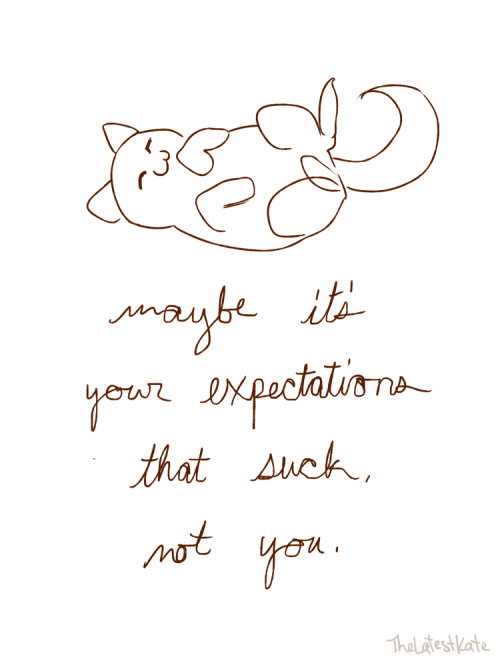 maybe it's
your expectations
that suck,
not you.
TheLatestKate